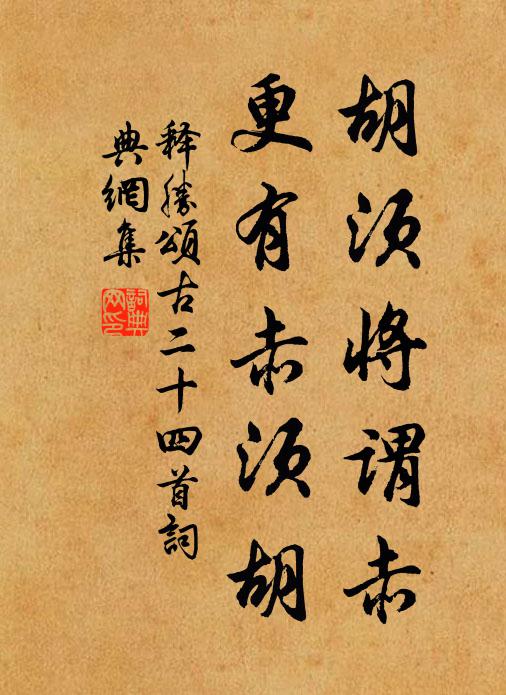 胡须将谓赤
更有赤须胡
释胜颂古二十四首词
典网集
詞典网印